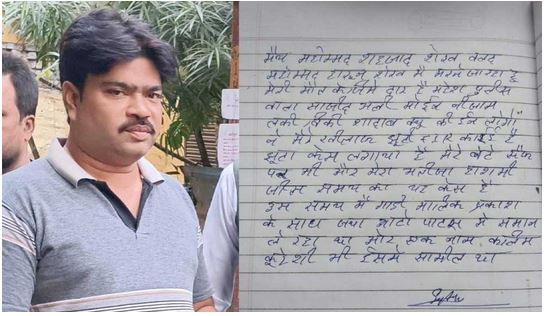 मैय मोहम्मद शहजाद शेख वल्द
मोहम्मद हारून शेख मै मरने जा रहा हु
मेरी मौत के जिमे दार है महेश पुलीस
वाला साजीद अली माईक नीजाम
लकी विक्की शाहाब क्यू की ईन लोगो
ने मेरे खीलाफ झुठी FIR कराई है
झुटा केस लगाया है मेरे बेटे
पर भी और मेरा भतीजा हाशमी
जीस समय का यह केस है
उस समय मै गाडी मालिक प्रकाश
के साथ जया ओटो पार्टस मे समान
ले रहा था और एक नाम कलिम
कुरेशी भी ईसमे सामील था